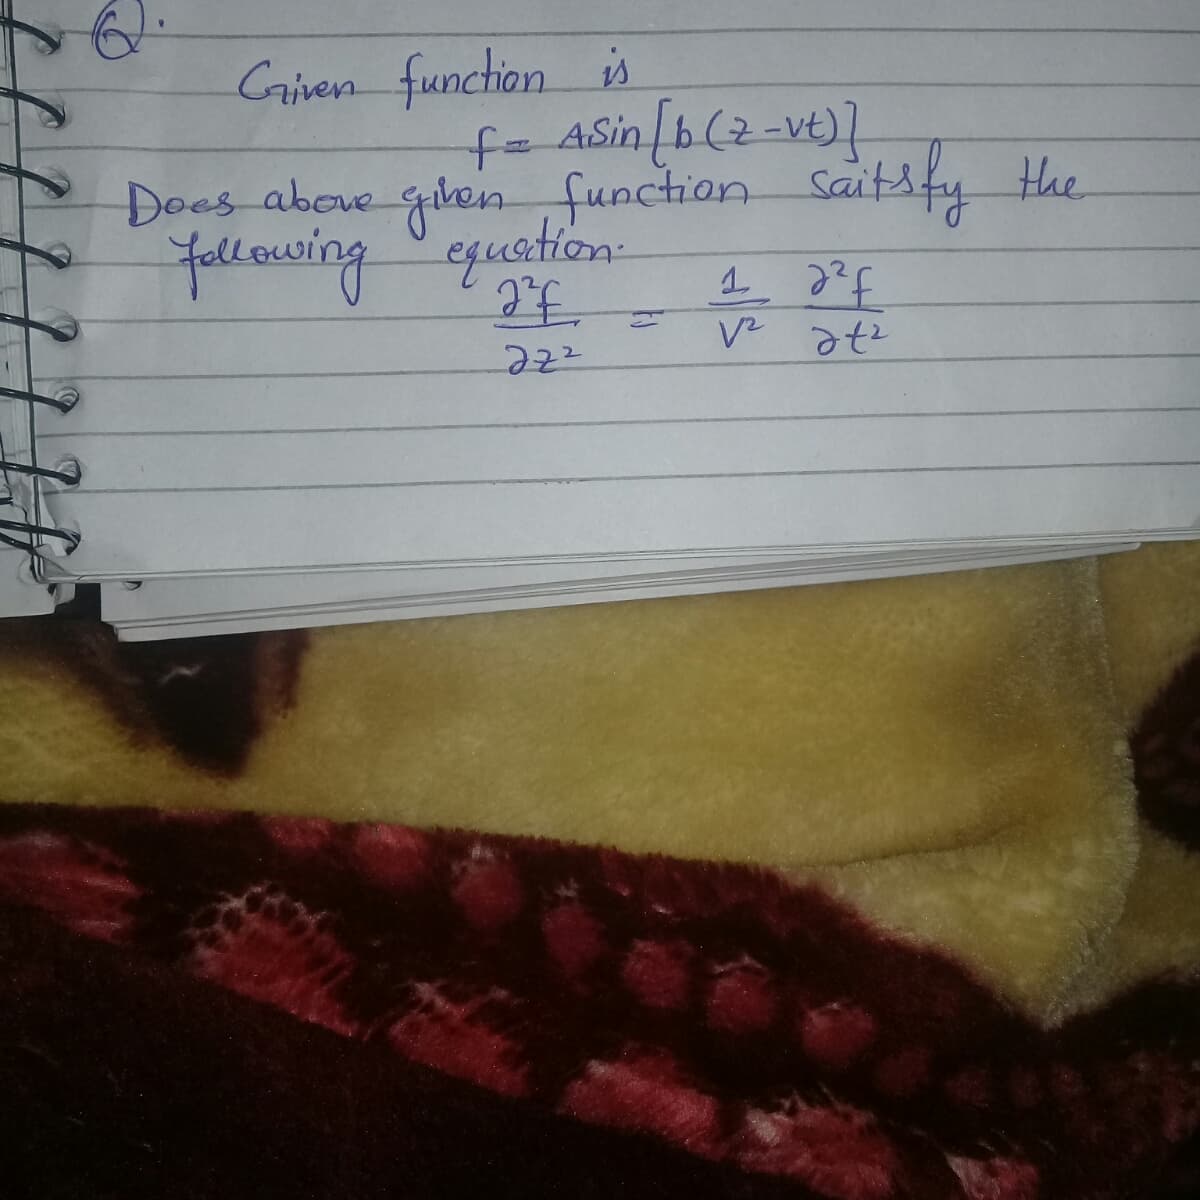 Q.
Given function is
f = A Sin [b (z - vt)]
Does above given function saitsfy the
following equation.
∂²f/∂z² = 1/V² ∂²f/∂t²